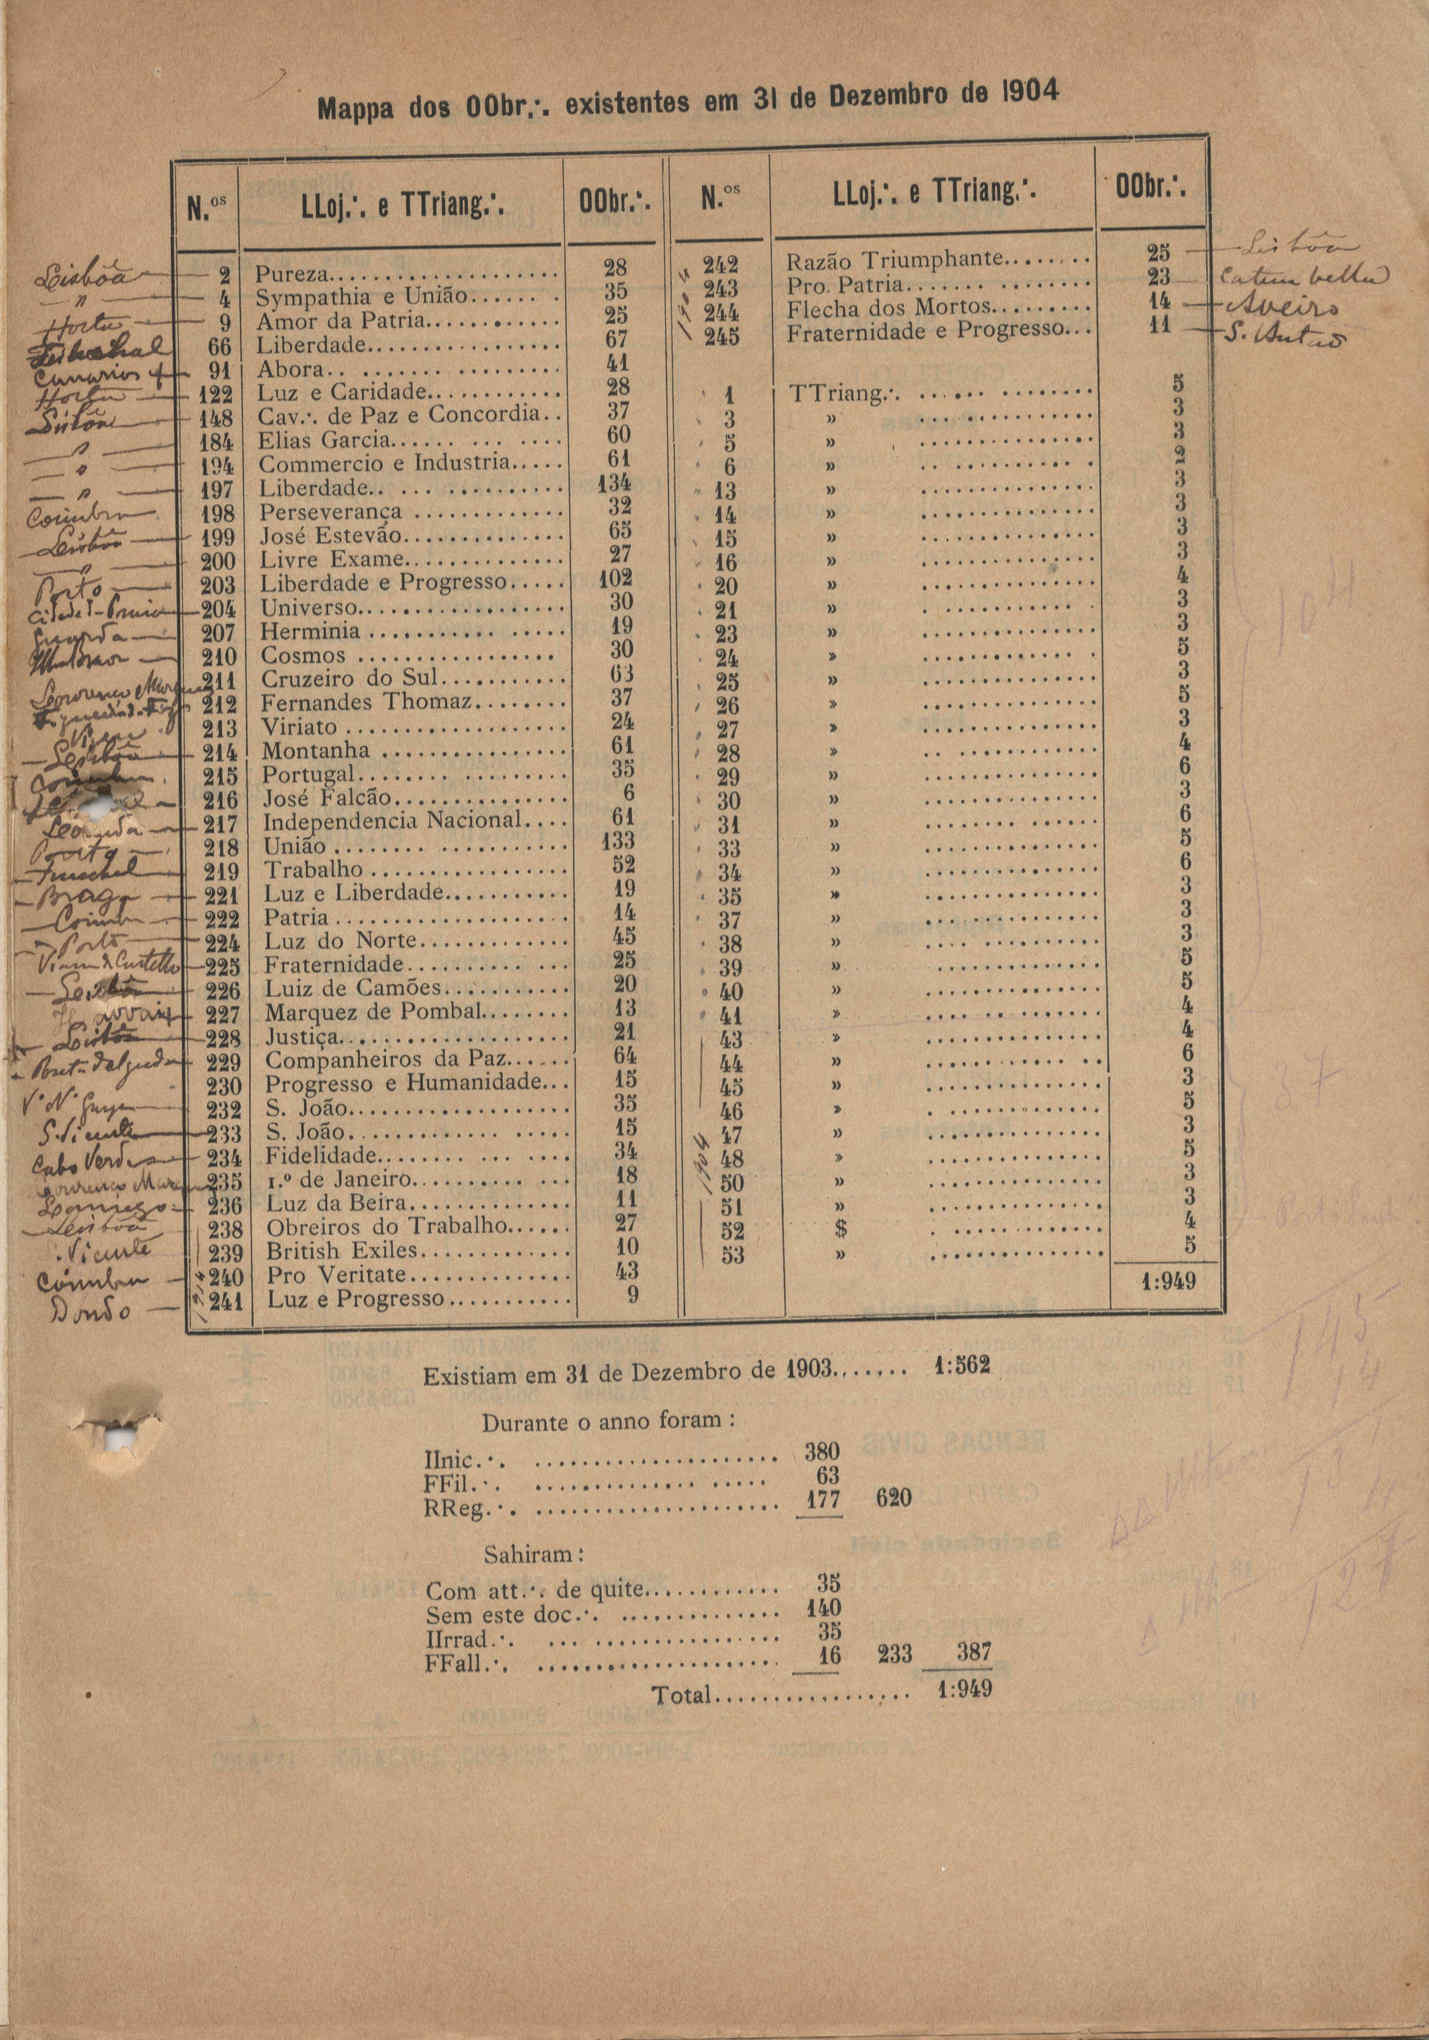 Mappa dos OObr.·. existentes em 31 de Dezembro de 1904
N.os LLoj.·. e TTriang.·. OObr.·. N.os LLoj.·. e TTriang.·. OObr.·.
Lisbôa 2 Pureza 28
" 4 Sympathia e União 35
Horta 9 Amor da Patria 25
Funchal 66 Liberdade 67
Canarias 91 Abora 41
Horta 122 Luz e Caridade 28
Lisbôa 148 Cav.·. de Paz e Concordia 37
" 184 Elias Garcia 60
" 194 Commercio e Industria 61
" 197 Liberdade 134
Coimbra 198 Perseverança 32
Lisbôa 199 José Estevão 65
" 200 Livre Exame 27
Porto 203 Liberdade e Progresso 102
204 Universo 30
Guarda 207 Herminia 19
210 Cosmos 30
Lourenço Marques 211 Cruzeiro do Sul 63
Figueira da Foz 212 Fernandes Thomaz 37
Vizeu 213 Viriato 24
Lisbôa 214 Montanha 61
Coimbra 215 Portugal 35
216 José Falcão 6
217 Independencia Nacional 61
Porto 218 União 133
Funchal 219 Trabalho 52
Braga 221 Luz e Liberdade 19
Coimbra 222 Patria 14
Porto 224 Luz do Norte 45
Vianna do Castello 225 Fraternidade 25
Lisbôa 226 Luiz de Camões 20
227 Marquez de Pombal 13
Lisbôa 228 Justiça 21
Ponta Delgada 229 Companheiros da Paz 64
230 Progresso e Humanidade 15
Vª Nª Gaya 232 S. João 35
S. Vicente 233 S. João 15
Cabo Verde 234 Fidelidade 34
Lourenço Marques 235 1.º de Janeiro 18
Lamego 236 Luz da Beira 11
Lisbôa 238 Obreiros do Trabalho 27
S. Vicente 239 British Exiles 10
Coimbra 240 Pro Veritate 43
Dondo 241 Luz e Progresso 9
1904
242 Razão Triumphante 25 Lisbôa
243 Pro. Patria 23 Catumbella
244 Flecha dos Mortos 14 Aveiro
245 Fraternidade e Progresso 11 S. Antão
1904
1 TTriang.·. 5
3 » 3
5 » 3
6 » 2
13 » 3
14 » 3
15 » 3
16 » 3
20 » 4
21 » 3
23 » 3
24 » 5
25 » 3
26 » 5
27 » 3
28 » 4
29 » 6
30 » 3
31 » 6
33 » 5
34 » 6
35 » 3
37 » 3
38 » 3
39 » 5
40 » 5
41 » 4
43 » 4
44 » 6
45 » 3
46 » 5
47 » 3
48 » 5
50 » 3
51 » 3
52 $ 4
53 » 5
1904
1:949
Existiam em 31 de Dezembro de 1903 1:562
Durante o anno foram :
IInic.·. 380
FFil.·. 63
RReg.·. 177 620
Sahiram :
Com att.·. de quite 35
Sem este doc.·. 140
IIrrad.·. 35
FFall.·. 16 233 387
Total 1:949
104
37
145